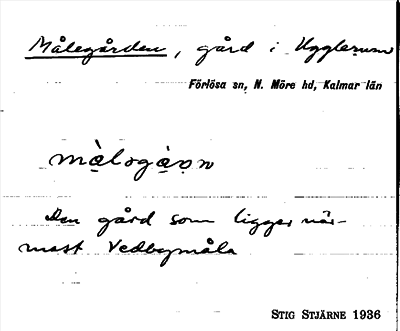 Målegården, gård i Ugglerum
Förlösa sn, N. Möre hd, Kalmar län
Den gård som ligger när-
mast Vedbymåla
STIG STJÄRNE 1936